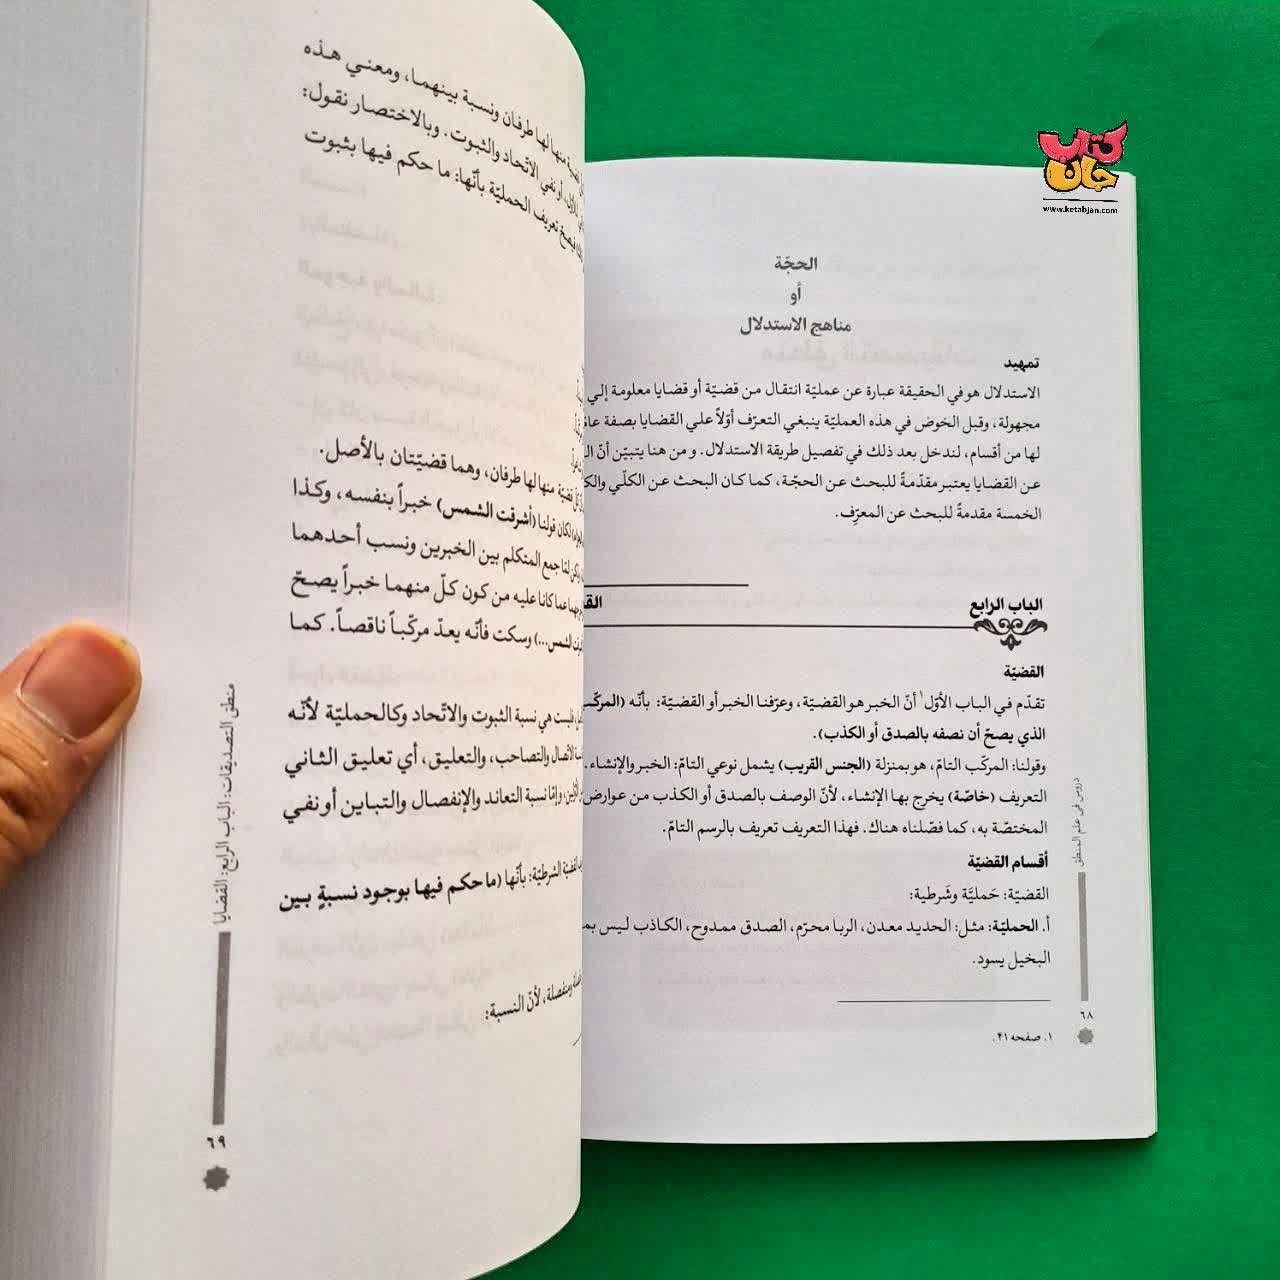 كتاب
جان
www.ketabjan.com
الحجّة
أو
مناهج الاستدلال
تمهيد
الاستدلال هو في الحقيقة عبارة عن عمليّة انتقال من قضيّة أو قضايا معلومة إلي
مجهولة، وقبل الخوض في هذه العمليّة ينبغي التعرّف أوّلاً علي القضايا بصفة
لها من أقسام، لندخل بعد ذلك في تفصيل طريقة الاستدلال. و من هنا يتبيّن أنّ
عن القضايا يعتبر مقدّمةً للبحث عن الحجّة، كما كان البحث عن الكلّي
الخمسة مقدمةً للبحث عن المعرِّف.
الباب الرابع
القضيّة
تقدّم في الباب الأوّل١ أنّ الخبر هو القضيّة، وعرّفنا الخبر أو القضيّة: بأنّه (المركّب
الذي يصحّ أن نصفه بالصدق أو الكذب).
وقولنا: المركّب التامّ، هو بمنزلة (الجنس القريب) يشمل نوعي التامّ: الخبر والإنشاء.
التعريف (خاصّة) يخرج بها الإنشاء، لأنّ الوصف بالصدق أو الكذب من عوارض
المختصّة به، كما فصّلناه هناك. فهذا التعريف تعريف بالرسم التامّ.
أقسام القضيّة
القضيّة: حَمليَّة وشَرطية:
أ. الحمليّة: مثل: الحديد معدن، الربا محرّم، الصدق ممدوح، الكاذب ليس
البخيل يسود.
١. صفحه ٤١.
دروس في علم المنطق
٦٨
منها لها طرفان ونسبة بينهما، ومعني هذه
أو نفي الاتّحاد والثبوت. وبالاختصار نقول:
تعريف الحمليّة بأنّها: ما حكم فيها بثبوت
قضيّة منها لها طرفان، وهما قضيّتان بالأصل.
لكان قولنا (أشرقت الشمس) خبراً بنفسه، وكذا
جمع المتكلم بين الخبرين ونسب أحدهما
عما كانا عليه من كون كلّ منهما خبراً يصحّ
الشمس...) وسكت فأنّه يعدّ مركّباً ناقصاً. كما
فليست هي نسبة الثبوت والاتّحاد وكالحمليّة لأنّه
الاتّصال والتصاحب، والتعليق، أي تعليق الثاني
وإمّا نسبة التعاند والإنفصال والتباين أو نفي
القضيّة الشرطيّة: بأنّها (ما حكم فيها بوجود نسبةٍ بين
ومنفصلة، لأنّ النسبة:
منطق التصديقات: الباب الرابع: القضايا
٦٩